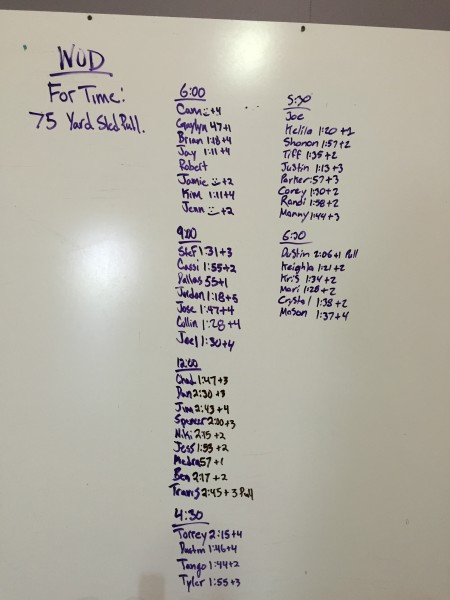 WOD
For Time:
75 Yard Sled Pull.
6:00
Cam +4
47+1
Brian 1:18+4
Jay 1:11+4
Robert
Jamie +2
Kim 1:11+4
Jenn +2
9:00
Stef 1:31+3
Cassi 1:55+2
Dallas 55+1
Jordan 1:18+5
Jose 1:47+4
Collin 1:28+4
Joel 1:30+4
12:00
Chad 1:47+3
Dan 2:30+3
Jim 2:43+4
Spencer 2:00+3
Niki 2:15+2
Jess 1:55+2
57+1
Ben 2:17+2
Travis 2:45+3 Pull
4:30
Torrey 2:15+4
Dustin 1:46+4
Tango 1:44+2
Tyler 1:55+3
5:30
Joe
Kelila 1:20+1
Shanon 1:57+2
Tiff 1:35+2
Justin 1:13+3
Parker :57+3
Corey 1:30+2
Randi 1:58+2
Manny 1:44+3
6:30
Dustin 2:06+1 Pull
Keighla 1:21+2
Kris 1:34+2
Mari 1:28+2
Crystal 1:38+2
Mason 1:37+4